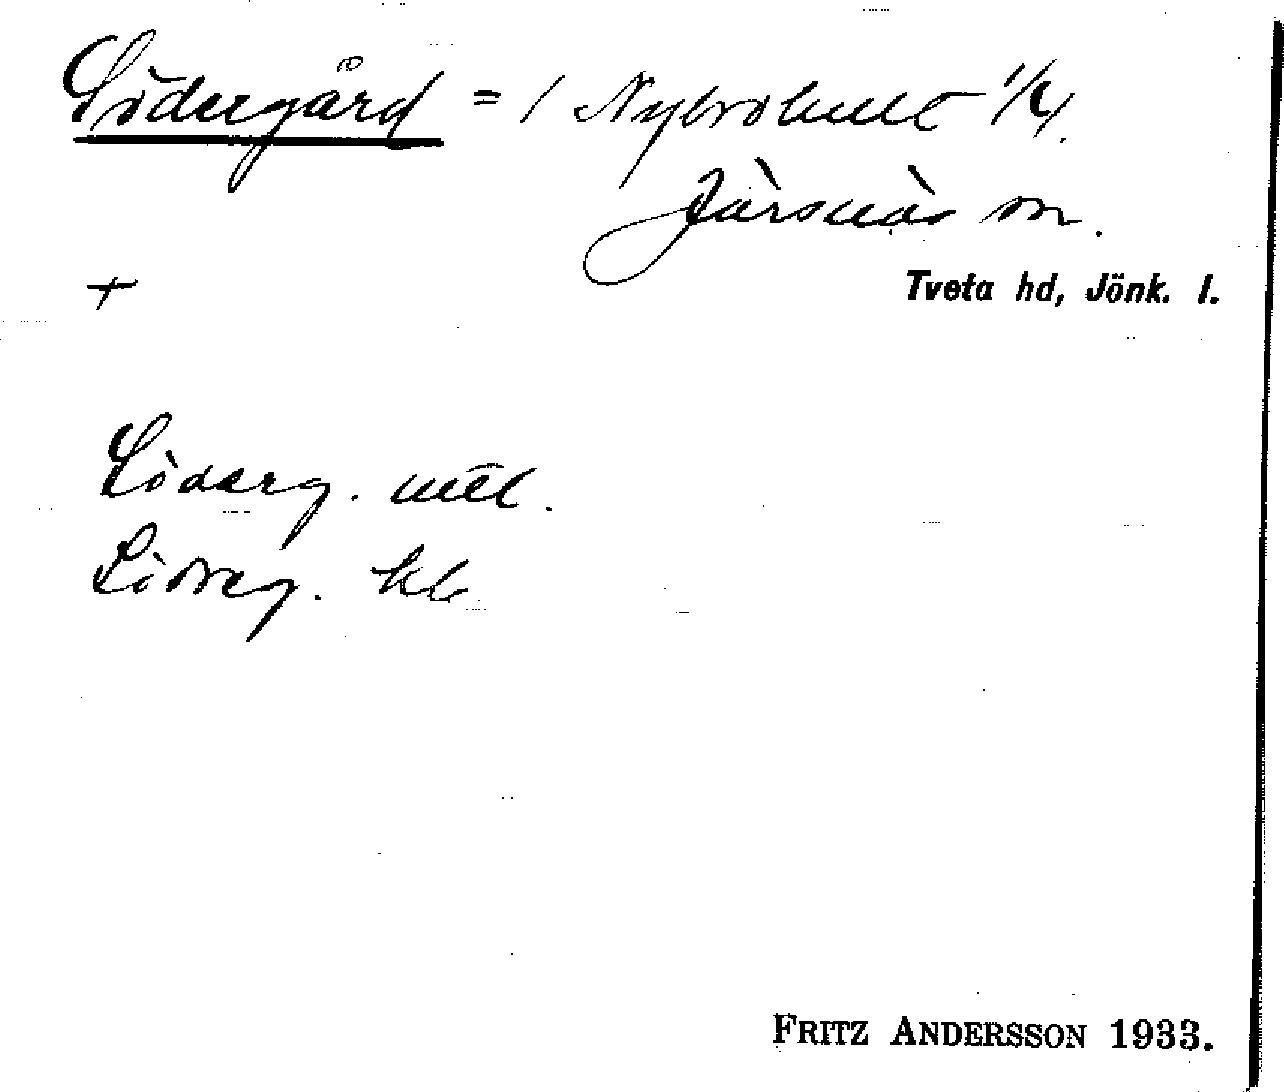 Södergård = 1 Nybrohult 1/4.
Järsnäs sn.
+
Tveta hd, Jönk. l.
Söderg. utt.
Söderg. kb
FRITZ ANDERSSON 1933.